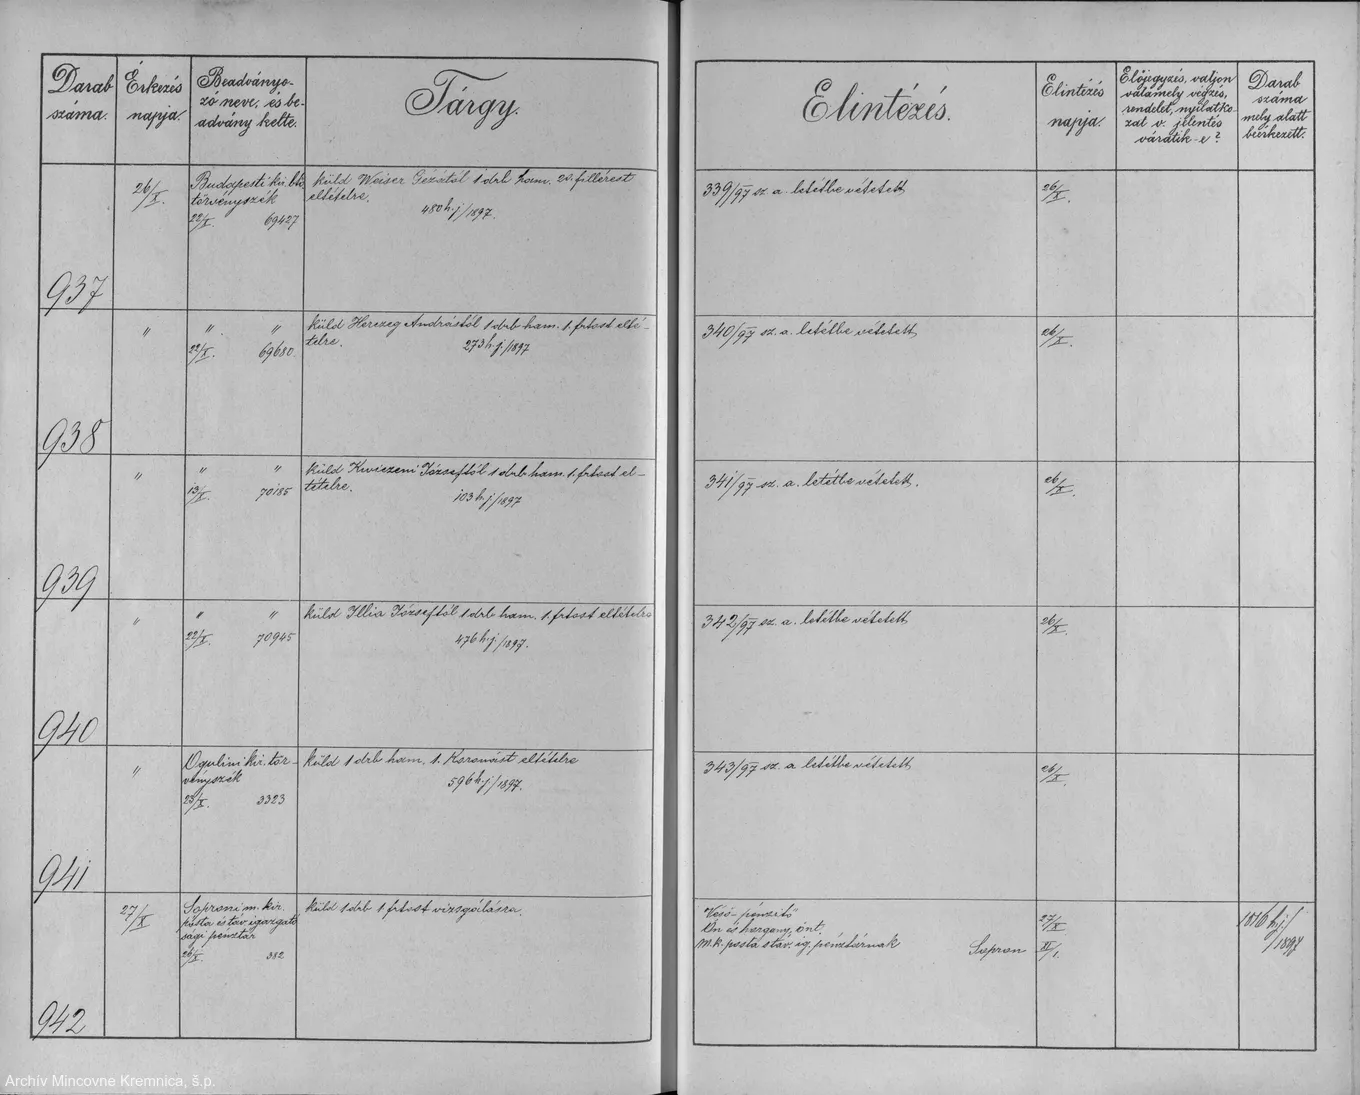 Darab száma.
Érkezés napja.
Beadványo-
zó neve, és be-
advány kelte.
Tárgy.
Elintézés.
Elintézés napja.
Előjegyzés, valjon
valamely végzés,
rendelet, nyilatko-
zat v. jelentés
váratik-e?
Darab
száma
mely alatt
beérkezett.
937
26/X.
Budapesti kir. btő
törvényszék
22/X. 69427
küld Weiser Gézától 1 drb ham. 20 fillérest
eltételre.
480 h.j/1897.
339/97 sz. a. letétbe vétetett
26/X.
938
" " "
22/X. 69680.
küld Herczeg Andrástól 1 drb ham. 1. frtost elté-
telre.
273 h.j/1897
340/97 sz. a. letétbe vétetett
26/X.
939
" " "
13/X. 70185
küld Józseftől 1 drb ham. 1. frtost el-
tételre.
103 h.j/1897
341/97 sz. a. letétbe vétetett.
26/X.
940
" " "
22/X. 70945
küld Illia Józseftől 1 drb ham. 1. frtost eltételre
476 h.j./1897.
342/97 sz. a. letétbe vétetett
26/X.
941
"
Ogulini kir. tör-
vényszék
23/X. 3323
küld 1 drb ham. 1. Koronást eltételre
596 h.j/1897.
343/97 sz. a letétbe vétetett
26/X.
942
27/X
Soproni m. kir.
posta és táv. igazgató
sági pénztár
26/X. 382
küld 1 drb 1 frtost vizsgálásra.
Veső- pénzítő
Ón és horgany, önt.
M.k. posta s táv. ig. pénztárnak Sopron
27/X
XI/1.
1816 h.j/1897
Archív Mincovne Kremnica, š.p.